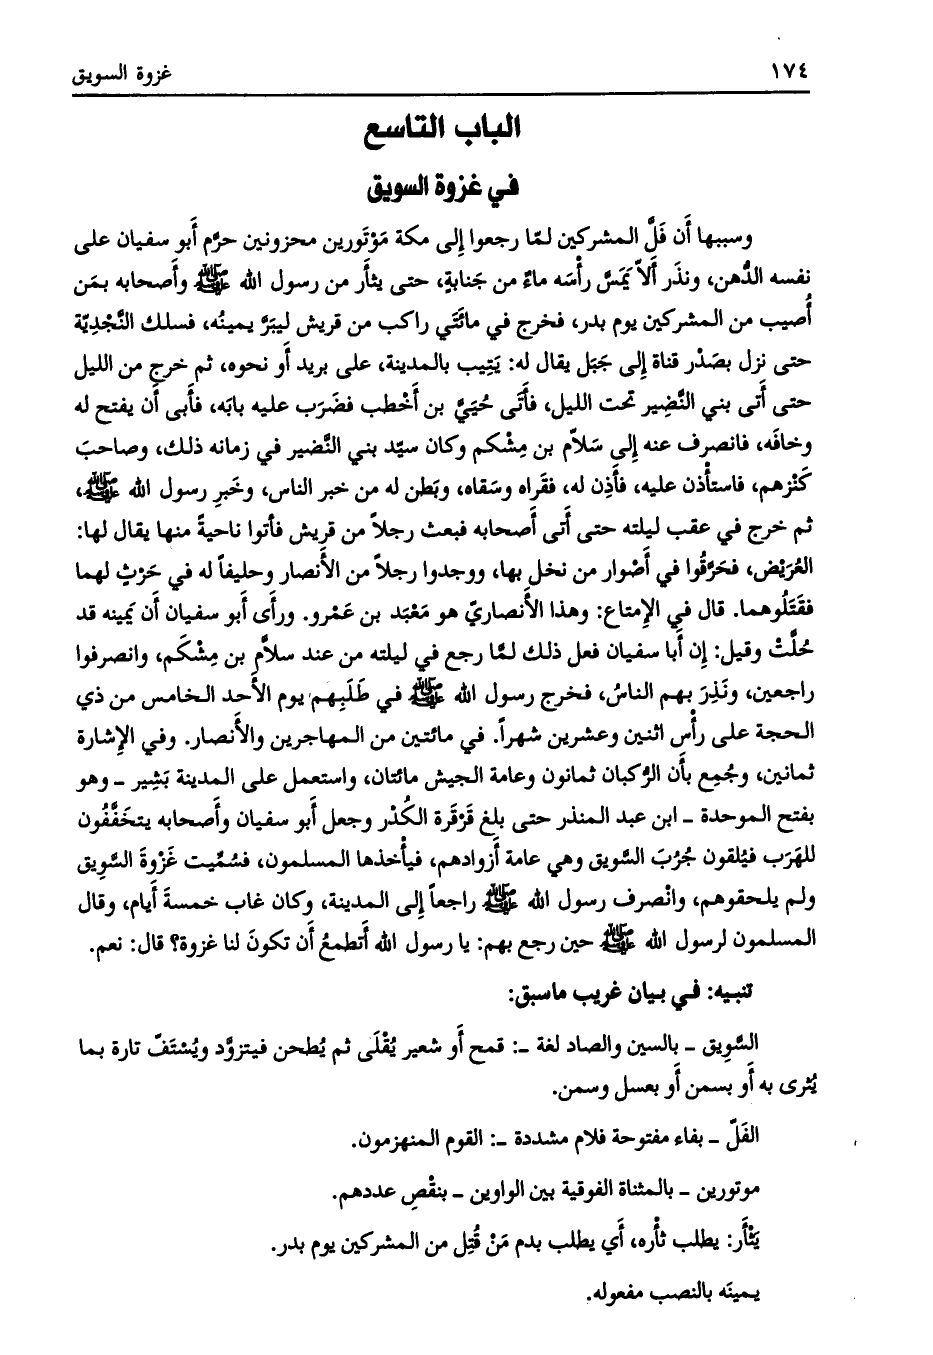 ١٧٤ غزوة السويق
الباب التاسع
في غزوة السويق
وسببها أَن فَلَّ المشركين لمّا رجعوا إلى مكة مَوْتَورين محزونين حرَّم أَبو سفيان على
نفسه الدُّهن، ونذَر أَلاَّ يَمَسَّ رأْسَه ماءٌ من جَنابةٍ، حتى يثأَر من رسول الله ﷺ وأَصحابه بمَن
أُصيب من المشركين يوم بدر، فخرج في مائَتَي راكب من قريش ليبَرَّ يمينُه، فسلك النَّجْديّة
حتى نزل بصَدْر قناة إلى جَبَل يقال له: يَتِيب بالمدينة، على بريد أَو نحوه، ثم خرج من الليل
حتى أَتى بني النَّضِير تحت الليل، فأَتَى حُيَيَّ بن أَخْطب فضَرَب عليه بابَه، فأَبى أَن يفتح له
وخافَه، فانصرف عنه إلى سَلاَّم بن مِشْكم وكان سيّد بني النَّضير في زمانه ذلك، وصاحبَ
كَنْزهم، فاستأْذن عليه، فأَذِن له، فقَراه وسَقاه، وبَطن له من خبر الناس، وخَبرِ رسول الله ﷺ،
ثم خرج في عقب ليلته حتى أَتى أَصحابه فبعث رجلاً من قريش فأَتوا ناحيةً منها يقال لها:
العُرَيْض، فحَرَّقُوا في أَصْوار من نخل بها، ووجدوا رجلاً من الأَنصار وحليفاً له في حَرْثٍ لهما
فقَتَلُوهما. قال في الإِمتاع: وهذا الأَنصاريّ هو مَعْبَد بن عَمْرو. ورأَى أَبو سفيان أَن يَمينه قد
حُلَّتْ وقيل: إن أَبا سفيان فعل ذلك لمَّا رجع في ليلته من عند سلاَّم بن مِشْكَم، وانصرفوا
راجعين، ونَذِرَ بهم الناسُ، فخرج رسول الله ﷺ في طَلَبِهم يوم الأَحد الخامس من ذي
الحجة على رأْس اثنين وعشرين شهراً. في مائتين من المهاجرين والأَنصار. وفي الإِشارة
ثمانين، وجُمِع بأَن الرُّكبان ثمانون وعامة الجيش مائتان، واستعمل على المدينة بَشِير ـ وهو
بفتح الموحدة ـ ابن عبد المنذر حتى بلغ قَرْقَرة الكُدْر وجعل أَبو سفيان وأَصحابه يتخَفَّفُون
للهَرَب فيُلقون جُرُبَ السَّويق وهي عامة أَزوادهم، فيأْخذها المسلمون، فسُمِّيت غَزْوةَ السَّويق
ولم يلحقوهم، وانْصرف رسول الله ﷺ راجعاً إلى المدينة، وكان غاب خمسةَ أَيام، وقال
المسلمون لرسول الله ﷺ حين رجع بهم: يا رسول الله أَتطمعُ أَن تكونَ لنا غزوة؟ قال: نعم.
تنبيه: في بيان غريب ماسبق:
السَّويق ـ بالسين والصاد لغة ـ: قمح أَو شعير يُقْلَى ثم يُطحن فيتزوَّد ويُسْتَفّ تارة بما
يُثْرى به أَو بسمن أَو بعسل وسمن.
الفَلّ ـ بفاء مفتوحة فلام مشددة ـ: القوم المنهزمون.
موتورين ـ بالمثناة الفوقية بين الواوين ـ بنقْصِ عددهم.
يَثْأَر: يطلب ثأْره، أَي يطلب بدم مَنْ قُتِل من المشركين يوم بدر.
يمينَه بالنصب مفعوله.